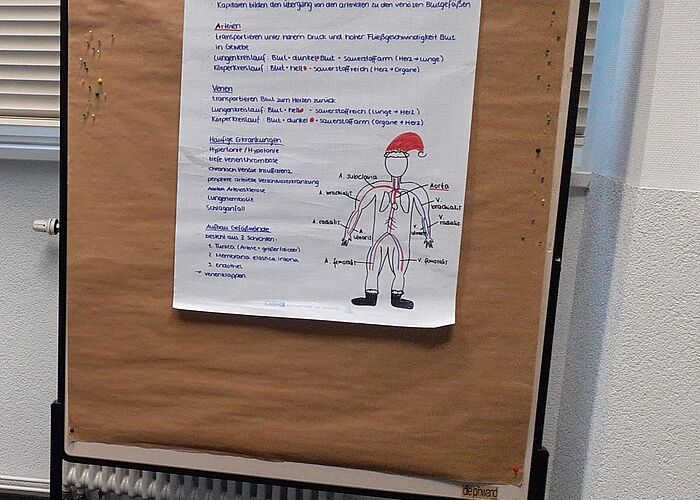 Kapillaren bilden den Übergang von den arteriellen zu den venösen Blutgefäßen
Arterien
transportieren unter hohem Druck und hoher Fließgeschwindigkeit Blut
in Gewebe
Lungenkreislauf: Blut = dunkel Blut = sauerstoffarm (Herz → Lunge)
Körperkreislauf: Blut = hell = sauerstoffreich (Herz → Organe)
Venen
transportieren Blut zum Herzen zurück
Lungenkreislauf: Blut = hell = sauerstoffreich (Lunge → Herz)
Körperkreislauf: Blut = dunkel = sauerstoffarm (Organe → Herz)
Häufige Erkrankungen
Hypertonie / Hypotonie
tiefe Venenthrombose
chronisch venöse Insuffizienz
periphere arterielle Verschlusserkrankung
Arteriosklerose
Lungenembolie
Schlaganfall
Aufbau Gefäßwände
besteht aus 3 Schichten:
1. Tunica (Arterie = größer/dicker)
2. Membrana elastica interna
3. Endothel
→ Venenklappen
A. subclavia
Aorta
A. brachialis
V. brachialis
A. radialis
V. radialis
A. ulnaris
V. ulnaris
A. femoralis
V. femoralis
die pinwand